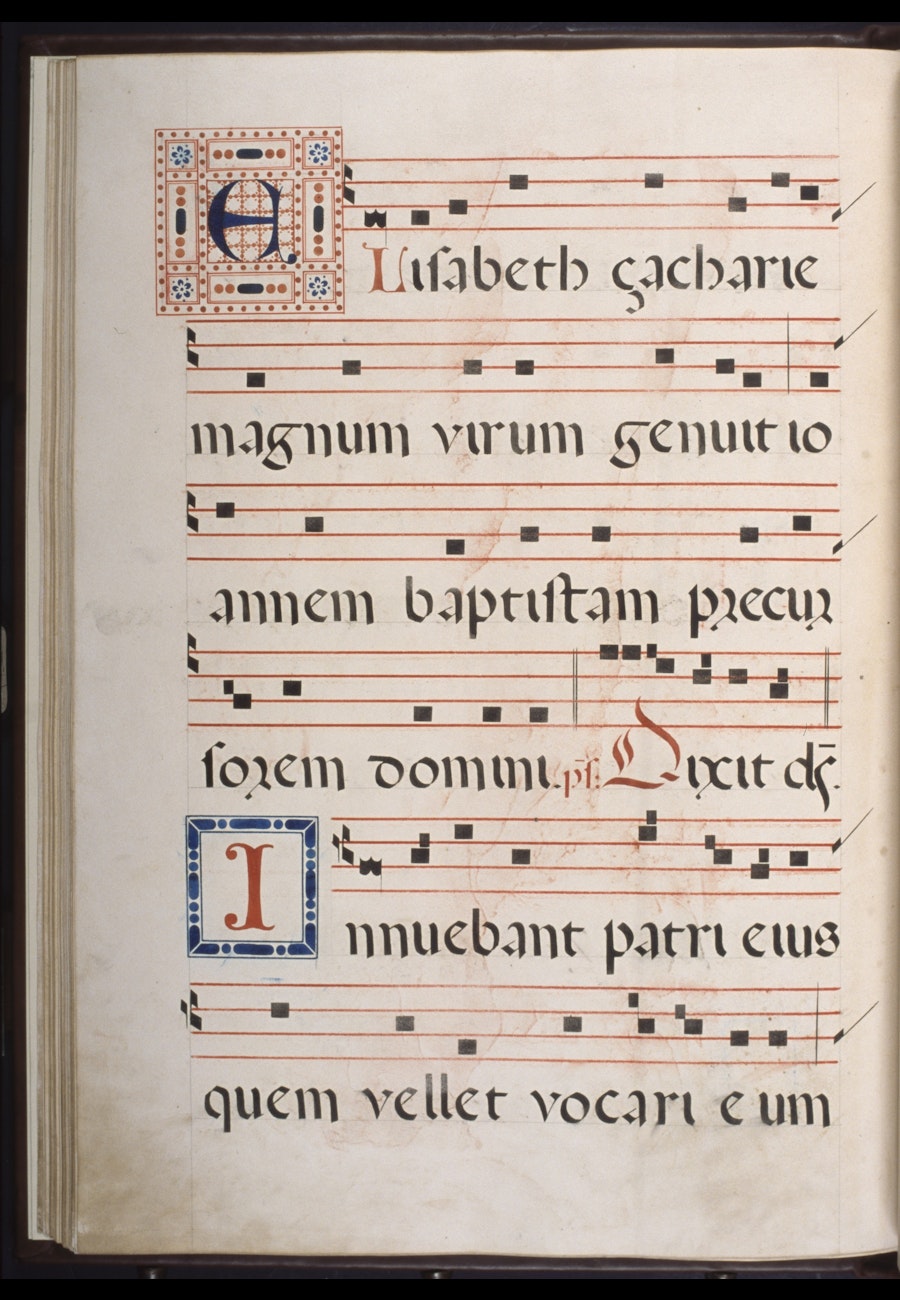 ELisabeth çacharie
magnum virum genuit io
annem baptiſtam precur
ſorem domini. pſ. Dixit dſ̄.
Innuebant patri eius
quem vellet vocari eum